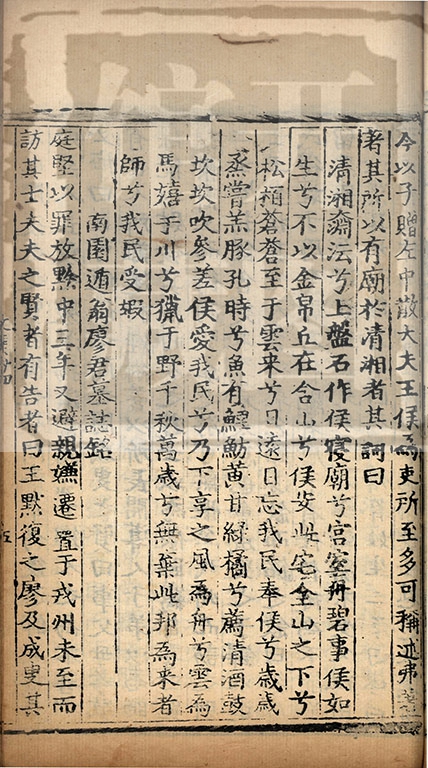 今以子贈左中散大夫王侯為吏所至多可稱述弗著
著其所以有廟於清湘者其詞曰
清湘㵝沄兮上盤石作侯寑廟兮宫室丹碧事侯如
生兮不以金帛丘在含山兮侯安此宅全山之下兮
松栢蒼蒼至于雲来兮日遠日忘我民奉侯兮歳歳
蒸嘗羔豚孔時兮魚有鱮魴黄甘緑橘兮薦清酒鼓
坎坎吹參差侯愛我民兮乃下享之風為舟兮雲為
馬嬉于川兮獵于野千秋萬歳兮無棄此邦為来者
師兮我民受嘏
南園遁翁廖君墓誌銘
庭堅以罪放黔中三年又避親嫌遷置于戎州未至而
訪其士大夫之賢者有告者曰王默復之廖及成叟其